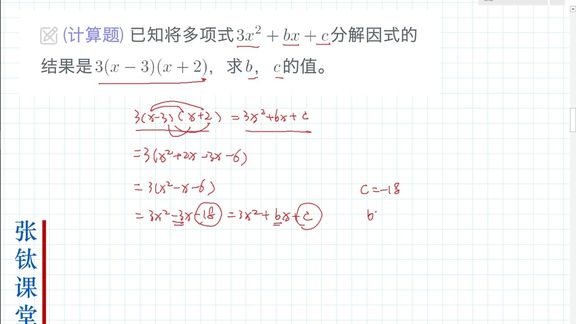 (计算题) 已知将多项式3x² + bx + c分解因式的
结果是 3(x − 3)(x + 2)，求 b，c 的值。
3(x-3)(x+2) = 3x²+bx+c
=3(x²+2x-3x-6)
=3(x²-x-6)
=3x²-3x-18 =3x²+bx+c
c=-18
b
张钛课堂